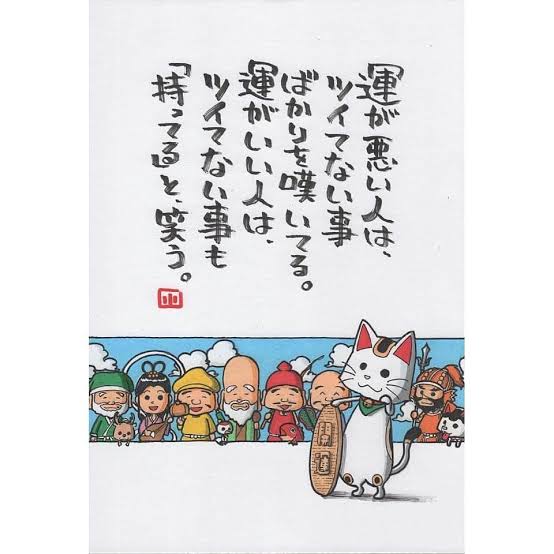 「運が悪い人は、
ツイてない事
ばかりを嘆いてる。
運がいい人は、
ツイてない事も
「持ってる」と、笑う。